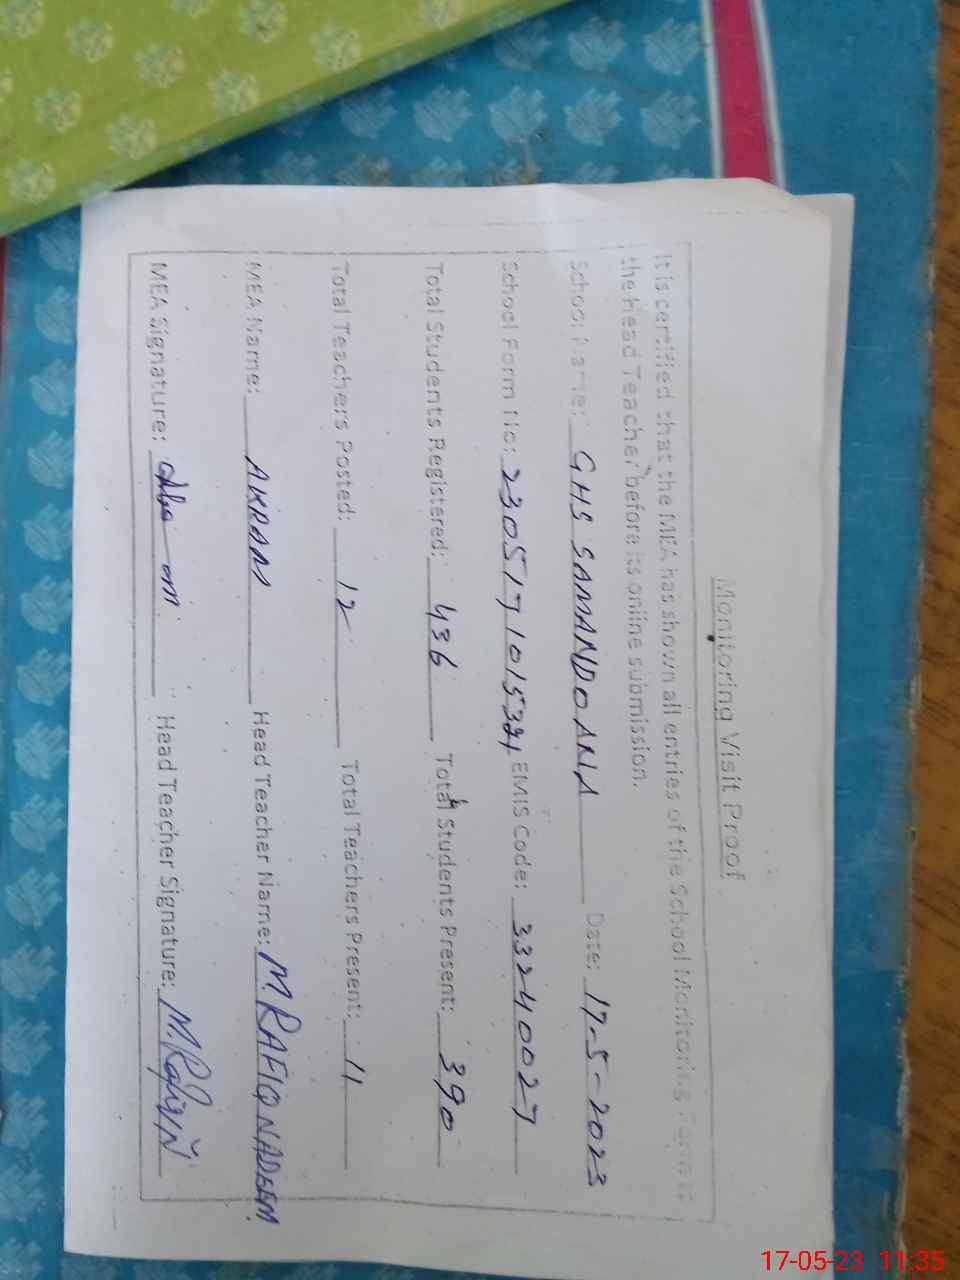 Monitoring Visit Proof
It is certified that the MEA has shown all entries of the School Monitoring Form to
the Head Teacher before its online submission.
School Name: GHS SAMANDOANA Date: 17-5-2023
School Form No: 2305171015321 EMIS Code: 33240027
Total Students Registered: 436 Total Students Present: 390
Total Teachers Posted: 12 Total Teachers Present: 11
MEA Name: AKRAM Head Teacher Name: M. RAFIQ NADEEM
MEA Signature: Head Teacher Signature:
17-05-23 11:35